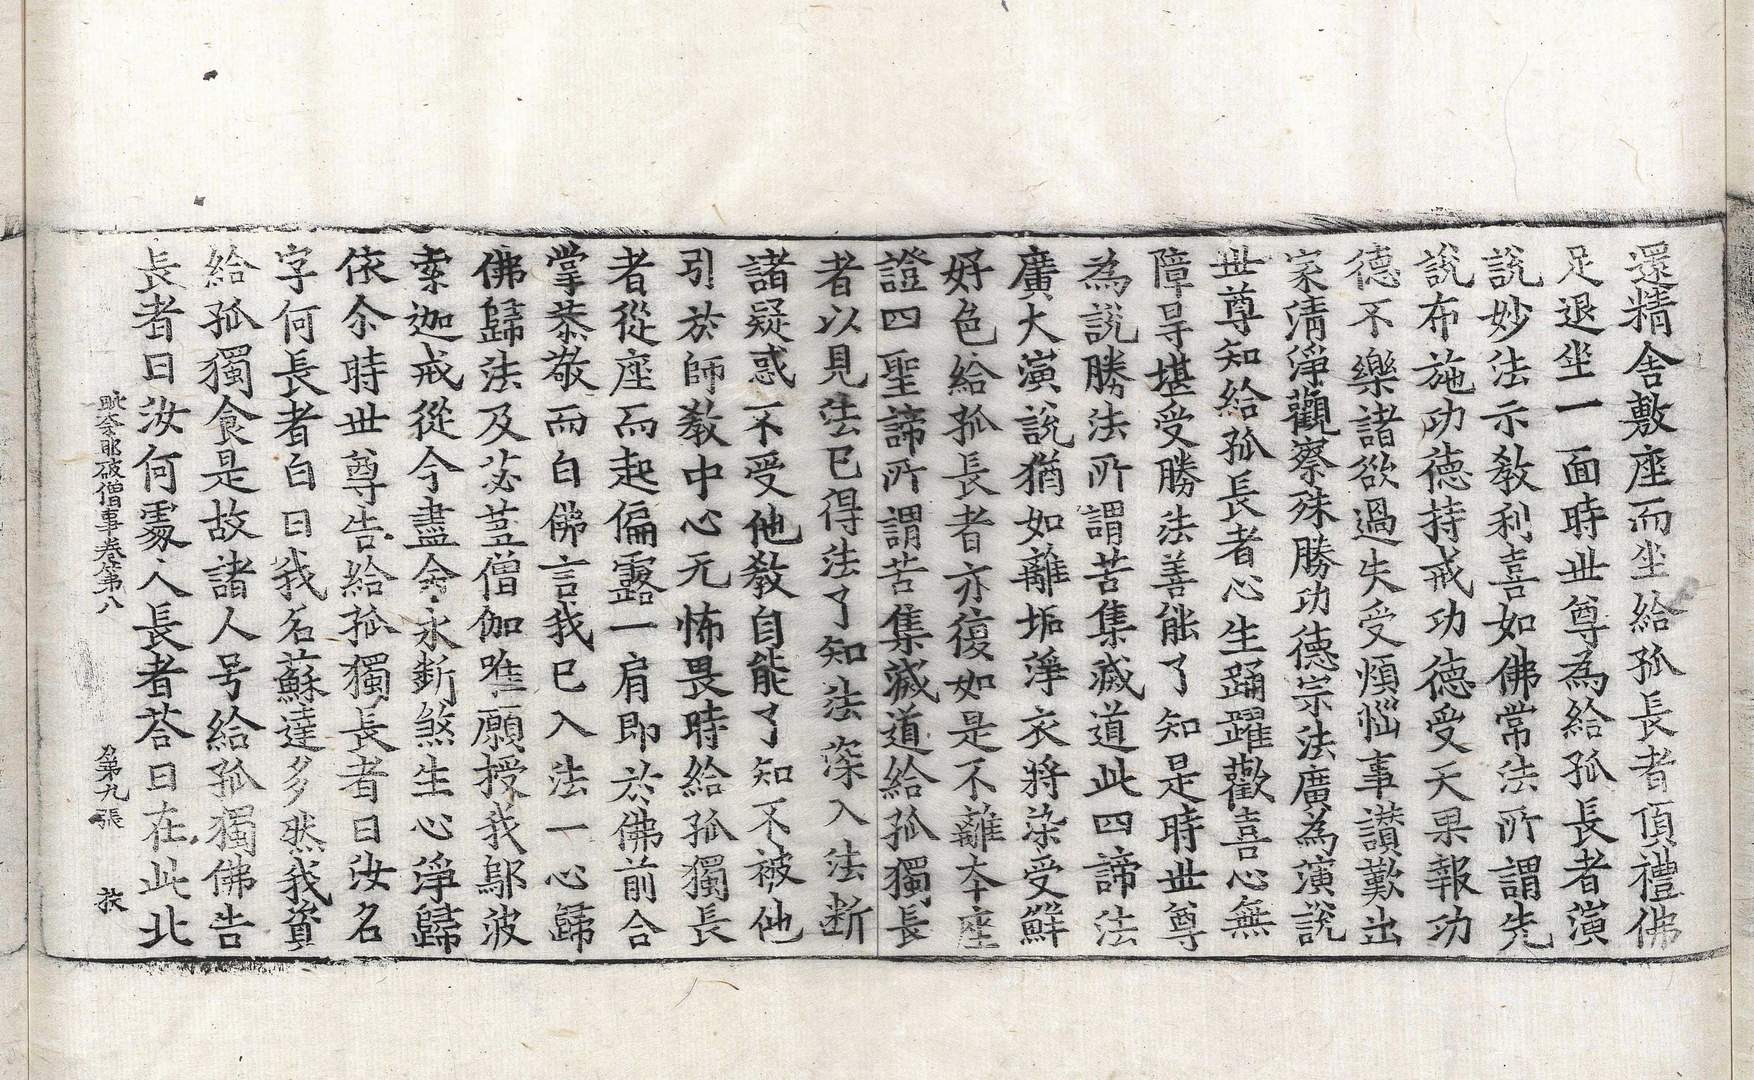 還精舍敷座而坐給孤長者頂禮佛
足退坐一面時世尊為給孤長者演
說妙法示教利喜如佛常法所謂先
說布施功德持戒功德受天果報功
德不樂諸欲過失受煩惱事讃歎出
家清淨觀察殊勝功德宗法廣為演說
世尊知給孤長者心生踊躍歡喜心無
障㝵堪受勝法善能了知是時世尊
為說勝法所謂苦集滅道此四諦法
廣大演說猶如離垢淨衣將染受鮮
好色給孤長者亦復如是不離本座
證四聖諦所謂苦集滅道給孤獨長
者以見法已得法了知法深入法断
諸疑惑不受他教自能了知不被他
引於師教中心无怖畏時給孤獨長
者從座而起偏露一肩即於佛前合
掌恭敬而白佛言我已入法一心歸
佛歸法及苾蒭僧伽唯願授我鄔波
索迦戒從今盡命永斷煞生心淨歸
依尒時世尊告給孤獨長者曰汝名
字何長者白曰我名蘇達多然我資
給孤獨食是故諸人号給孤獨佛告
長者曰汝何處人長者荅曰在此北
毗奈耶破僧事卷第八 第九張 投